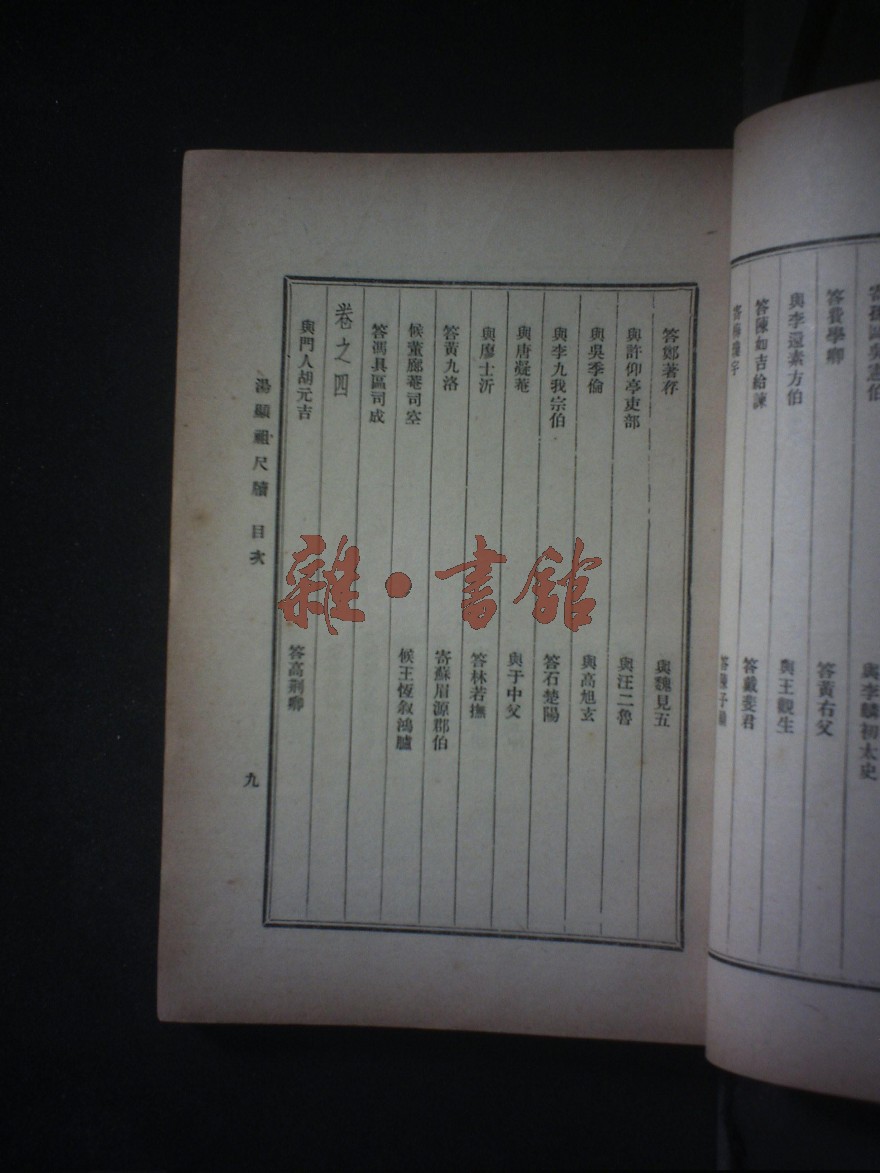 與李麟初太史
答費學卿
答黃右父
與李還素方伯
與王觀生
答陳如吉給諫
答戴斐君
答鄭著存
與魏見五
與許仰亭吏部
與汪二魯
與吳季倫
與高旭玄
與李九我宗伯
答石楚陽
與唐凝菴
與于中父
與廖士沂
答林若撫
答黃九洛
寄蘇眉源郡伯
候董廓菴司空
候王恆叙鴻臚
答馮具區司成
卷之四
與門人胡元吉
答高荆卿
湯顯祖尺牘 目次
九
雜·書館